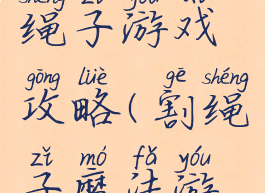 shéng zǐ yóu xì
绳子游戏
gōng lüè gē shéng
攻略(割绳
zǐ mó fǎ yóu
子魔法游